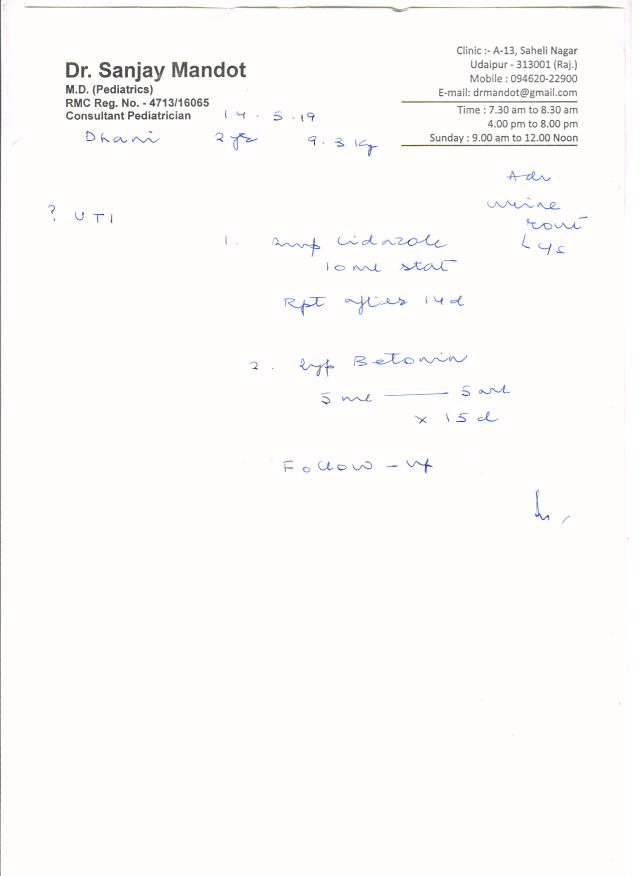 Dr. Sanjay Mandot
M.D. (Pediatrics)
RMC Reg. No. - 4713/16065
Consultant Pediatrician
Clinic :- A-13, Saheli Nagar
Udaipur - 313001 (Raj.)
Mobile : 094620-22900
E-mail: drmandot@gmail.com
Time : 7.30 am to 8.30 am
4.00 pm to 8.00 pm
Sunday : 9.00 am to 12.00 Noon
14.5.19
Dhani 2 yr 9.3 Kg
Adv
urine
rout
? UTI
1. Cidazole
10 ml stat
Rpt after 14 d
2. syp Betonin
5 ml —— 5 ml
x 15 d
Follow-up